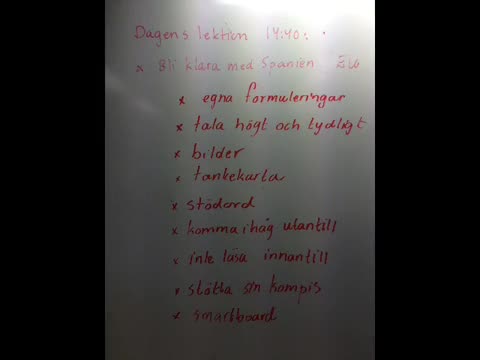 Dagens lektion 14:40:
x Bli klara med Spanien
x egna formuleringar
x tala högt och tydligt
x bilder
x tankekarta
x stödord
x komma ihåg utantill
x inte läsa innantill
x stötta sin kompis
x smartboard